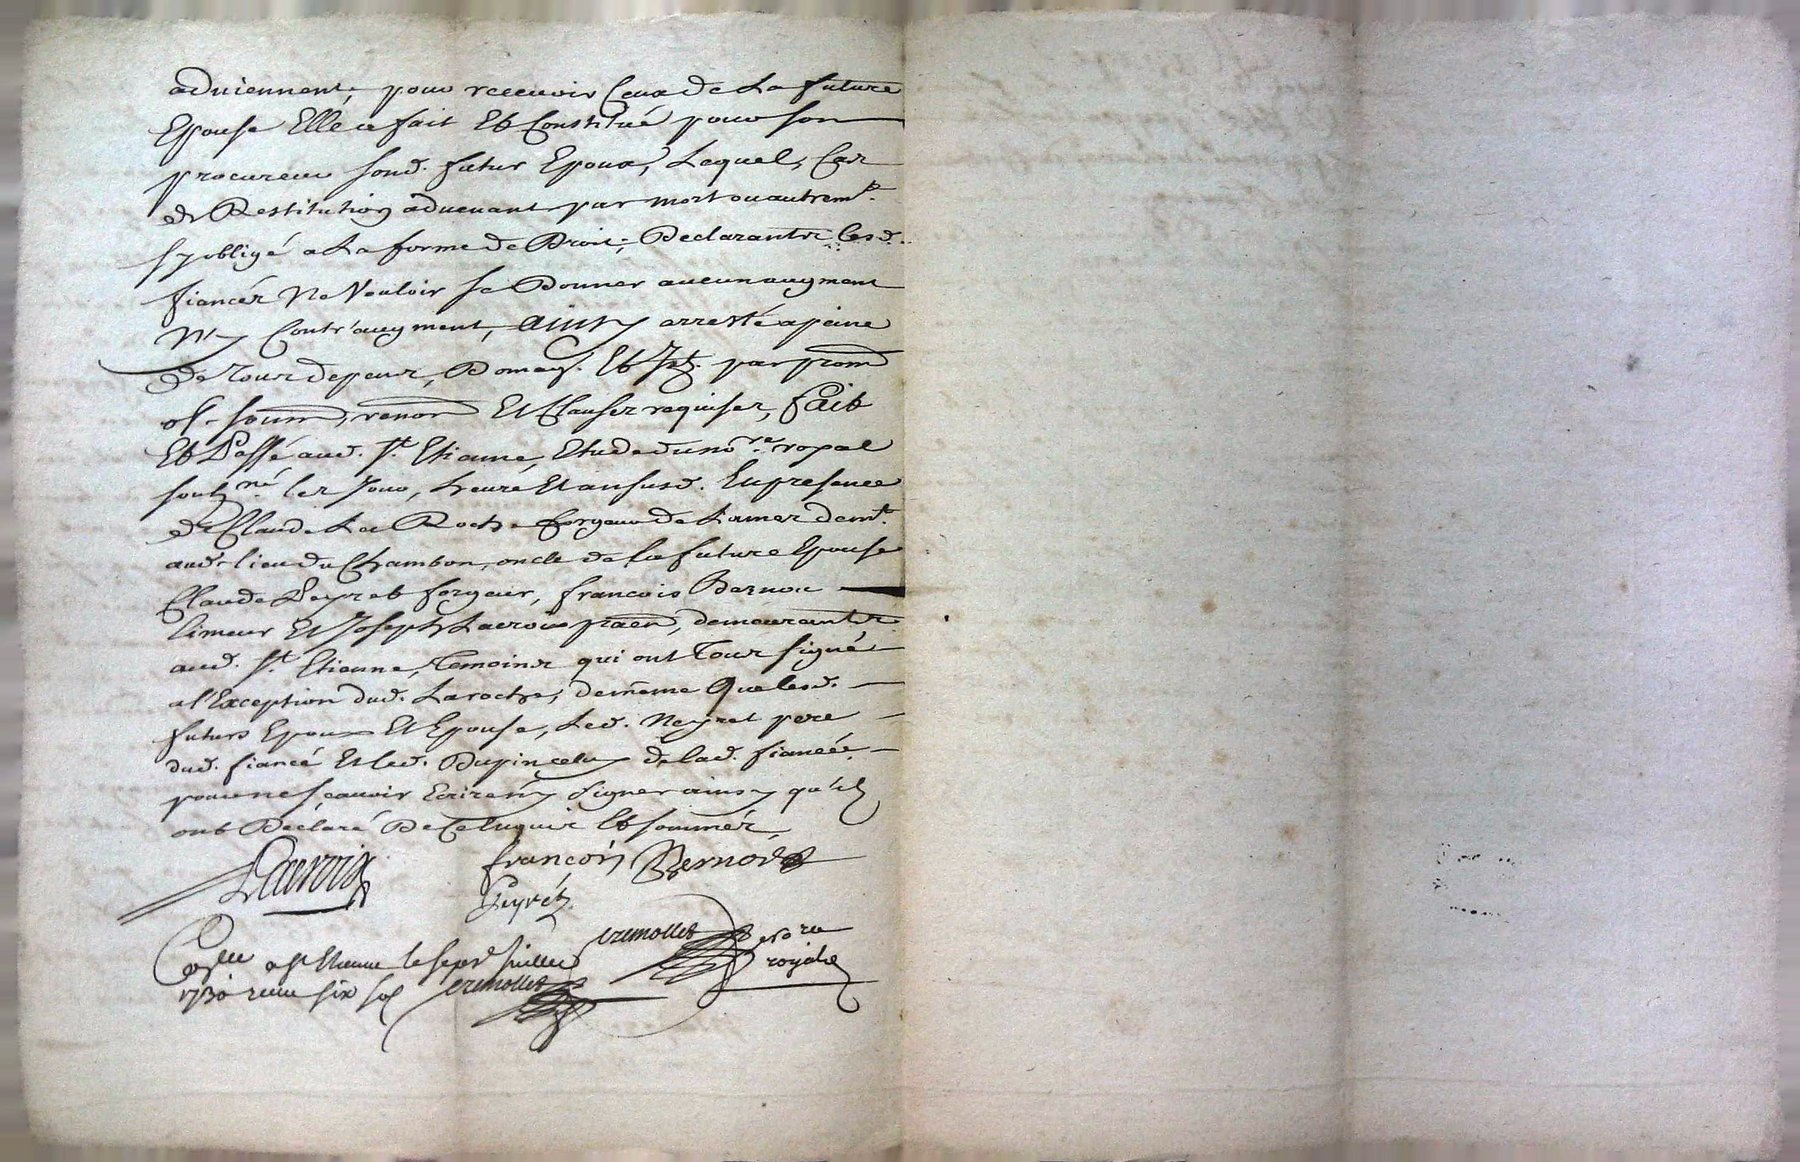 adviennent, pour recevoir Ceux de La future
Epouse Elle a fait Et Constitué pour son
procureur sond. futur Epoux, Lequel, Cas
de Restitution advenant par mort ou autremt.
s'y obligé a La forme de Droit; Declarants Lesd.
fiancés Ne Vouloir se Donner aucun augment
Ny Contr'augment, ainsy arresté a peine
de Tous depens, Domag. Et Jnt. par prom
obl. soum, renon Et Clauses requises, fait
Et Passé aud. St. Etienne, Etude du nore. royal
soubzné. les Jour, heure Et an susd. En presence
de Claude La Roche forgeur de Lames demt.
aud. lieu du Chambon, oncle de la future Epouse
Claude Peyret forgeur, francois Bernou
limeur Et Joseph Lacroix praen, demeurants
aud. St. Etienne, Temoins qui ont Tous signé
a l'Exception dud. Laroche, de même Que lesd.
futurs Epoux Et Epouse, Led. Neyret pere
dud. fiancé Et led. Dupin celuy de lad. fiancée
pour ne sçavoir Ecrire ny signer ainsy qu'ils
ont Declaré De Ce Enquis Et sommés
Lacroix francois Bernod
Peyret
cremollet nore
royal
Conllé a St Etienne le sept Juillet
1730 receu six sols cremollet